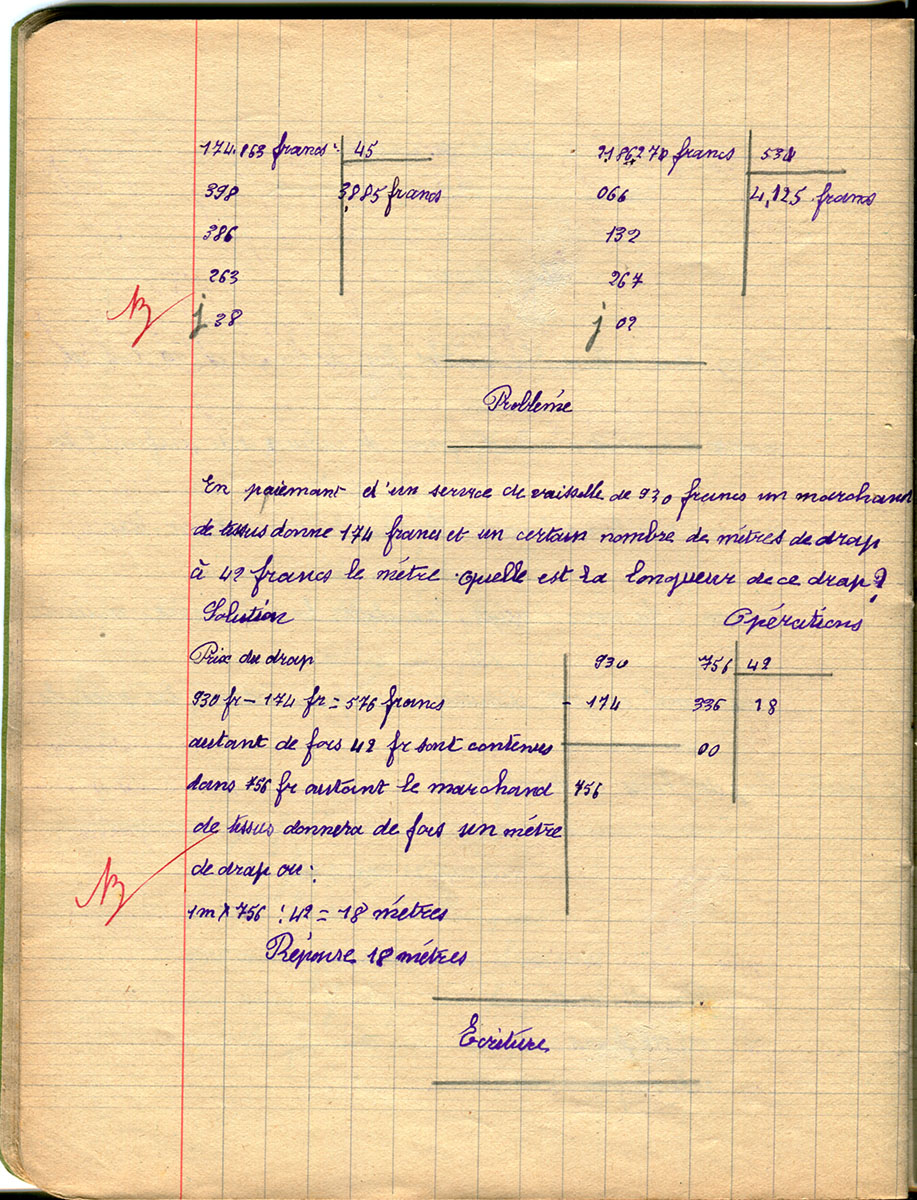 174.863 francs 45
398 3,885 francs
386
263
B j 38
2186270 francs 530
066 4,125 francs
132
267
j 02
Problème
En paiemant d'un service de vaisselle de 930 francs un marchand
de tissus donne 174 francs et un certain nombre de mètres de drap
à 42 francs le mètre. quelle est la longueur de ce drap?
Solution Opérations
Prix du drap 930 756 42
930 fr - 174 fr = 576 francs - 174 336 18
autant de fois 42 fr sont contenus 00
dans 756 fr autant le marchand 756
de tissus donnera de fois un mètre
de drap ou:
B
1m x 756 : 42 = 18 mètres
Réponse 18 mètres
Ecriture